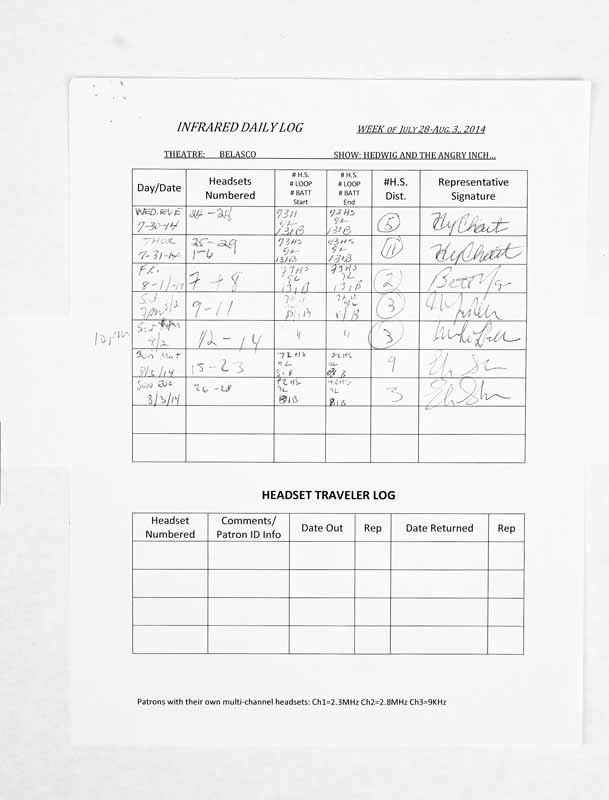 INFRARED DAILY LOG WEEK OF JULY 28-AUG. 3., 2014
THEATRE: BELASCO SHOW: HEDWIG AND THE ANGRY INCH...
Day/Date Headsets Numbered # H.S. # LOOP # BATT Start # H.S. # LOOP # BATT End #H.S. Dist. Representative Signature
WED. EVE 7-30-14 24-28 73H 9L 131B 73HS 9L 131B 5
THUR 7-31-14 25-29 1-6 73HS 9L 131B 73HS 9L 131B 11
Fri 8-1-14 7+8 73HS 9L 131B 73HS 9L 131B 2
8/2 9-11 3
10pm 8/2 12-14 " " 3
Sun Mat 8/3/14 15-23 72HS 9L 72HS 9L 9
SUN EVE 8/3/14 26-28 72HS 9L 72HS 9L 3
HEADSET TRAVELER LOG
Headset Numbered Comments/ Patron ID Info Date Out Rep Date Returned Rep
Patrons with their own multi-channel headsets: Ch1=2.3MHz Ch2=2.8MHz Ch3=9KHz